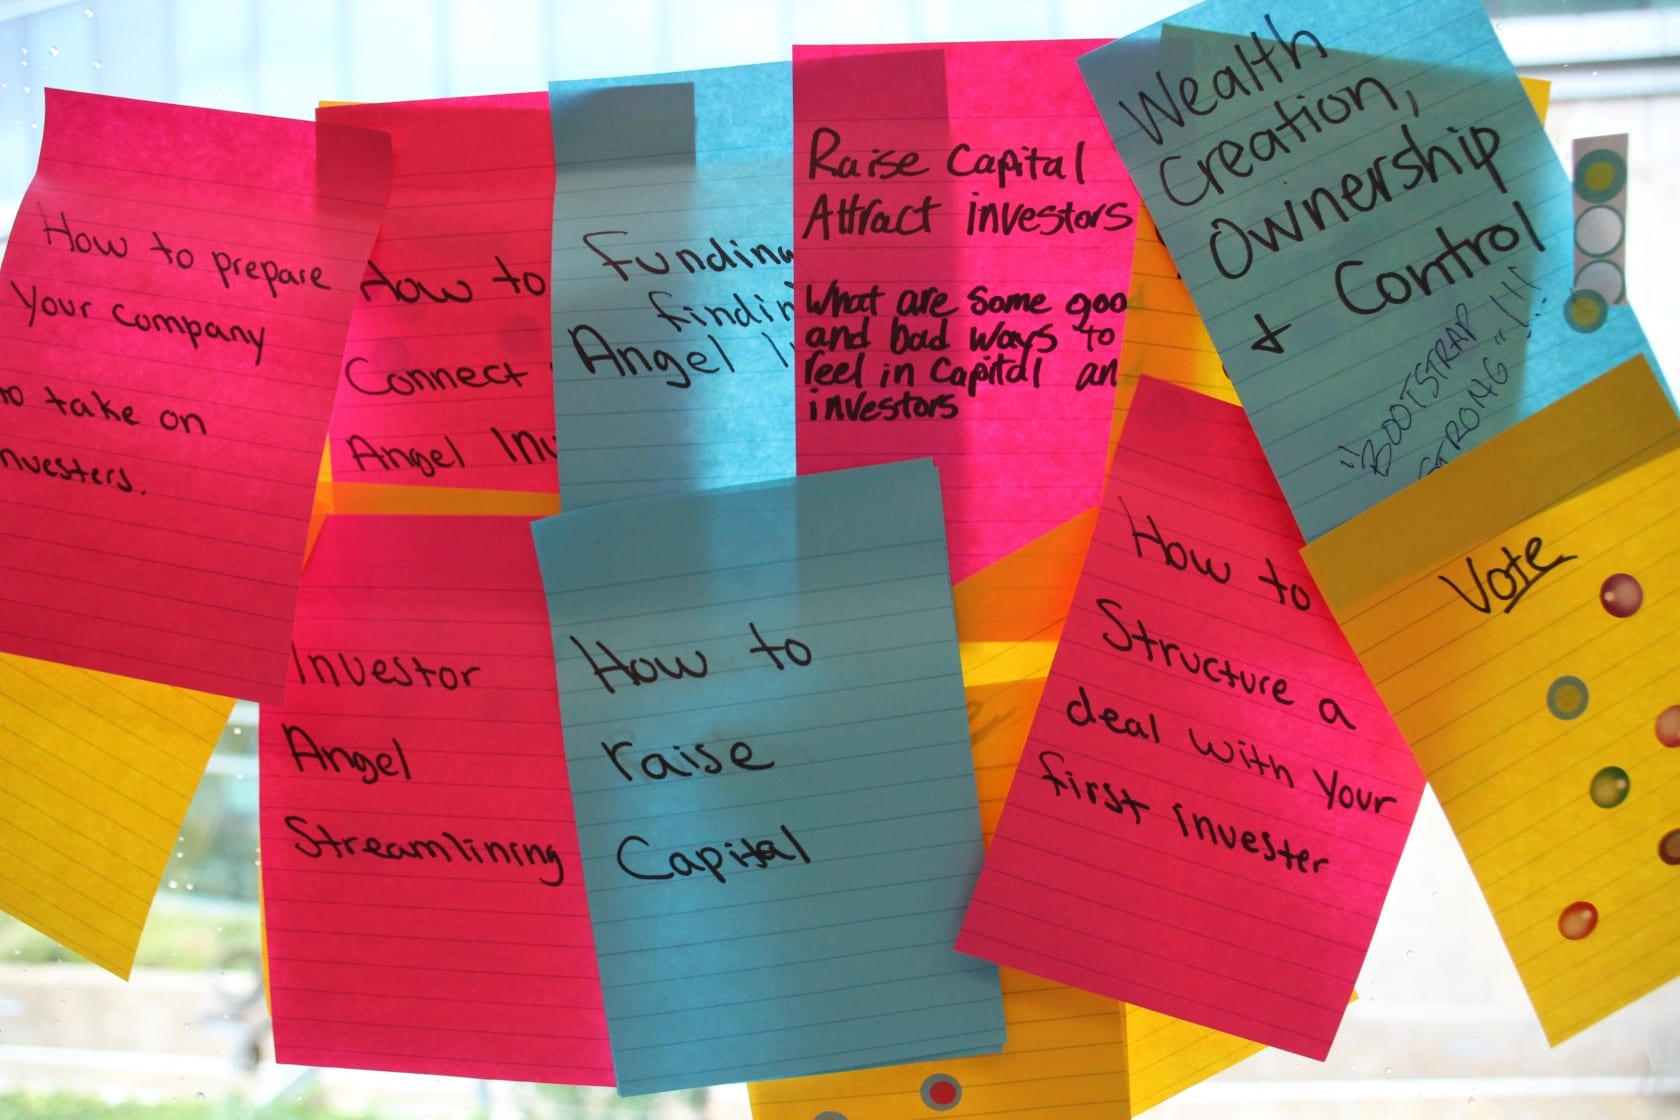 How to prepare
Your company
to take on
investers.
How to
Connect
Angel Inv
Funding
findin
Angel I
Raise Capital
Attract investors
What are some good
and bad ways to
reel in Capital an
investors
Wealth
Creation,
Ownership
& Control
"BOOTSTRAP
STRONG"!!!
Vote
Investor
Angel
Streamlining
How to
raise
Capital
How to
Structure a
deal with Your
first invester